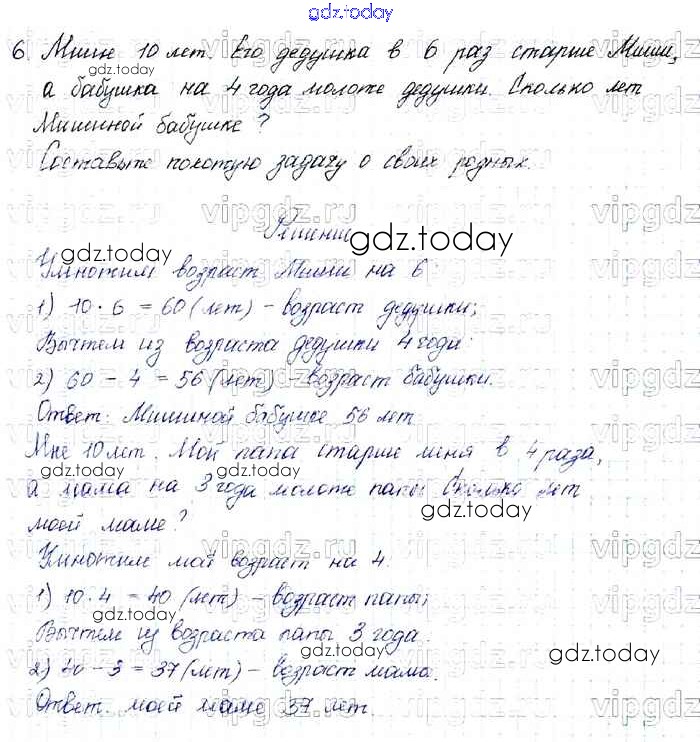 gdz.today
6. Мише 10 лет. Его дедушка в 6 раз старше Миши,
а бабушка на 4 года моложе дедушки. Сколько лет
Мишиной бабушке?
Составьте похожую задачу о своих родных.
Решение
Умножим возраст Миши на 6
1) 10 · 6 = 60 (лет) - возраст дедушки;
Вычтем из возраста дедушки 4 года:
2) 60 - 4 = 56 (лет) - возраст бабушки.
Ответ: Мишиной бабушке 56 лет
Мне 10 лет. Мой папа старше меня в 4 раза,
а мама на 3 года моложе папы. Сколько лет
моей маме?
Умножим мой возраст на 4.
1) 10 · 4 = 40 (лет) - возраст папы;
Вычтем из возраста папы 3 года.
2) 40 - 3 = 37 (лет) - возраст мама.
Ответ. моей маме 37 лет.
gdz.today
gdz.today
gdz.today
gdz.today
gdz.today
gdz.today
gdz.today
gdz.today
vipgdz.ru